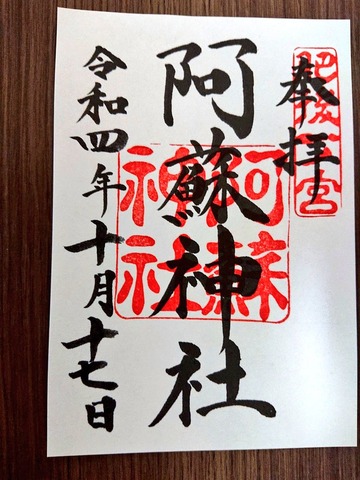 奉拝
肥後一宮
阿蘇神社
阿蘇神社
令和四年十月十七日